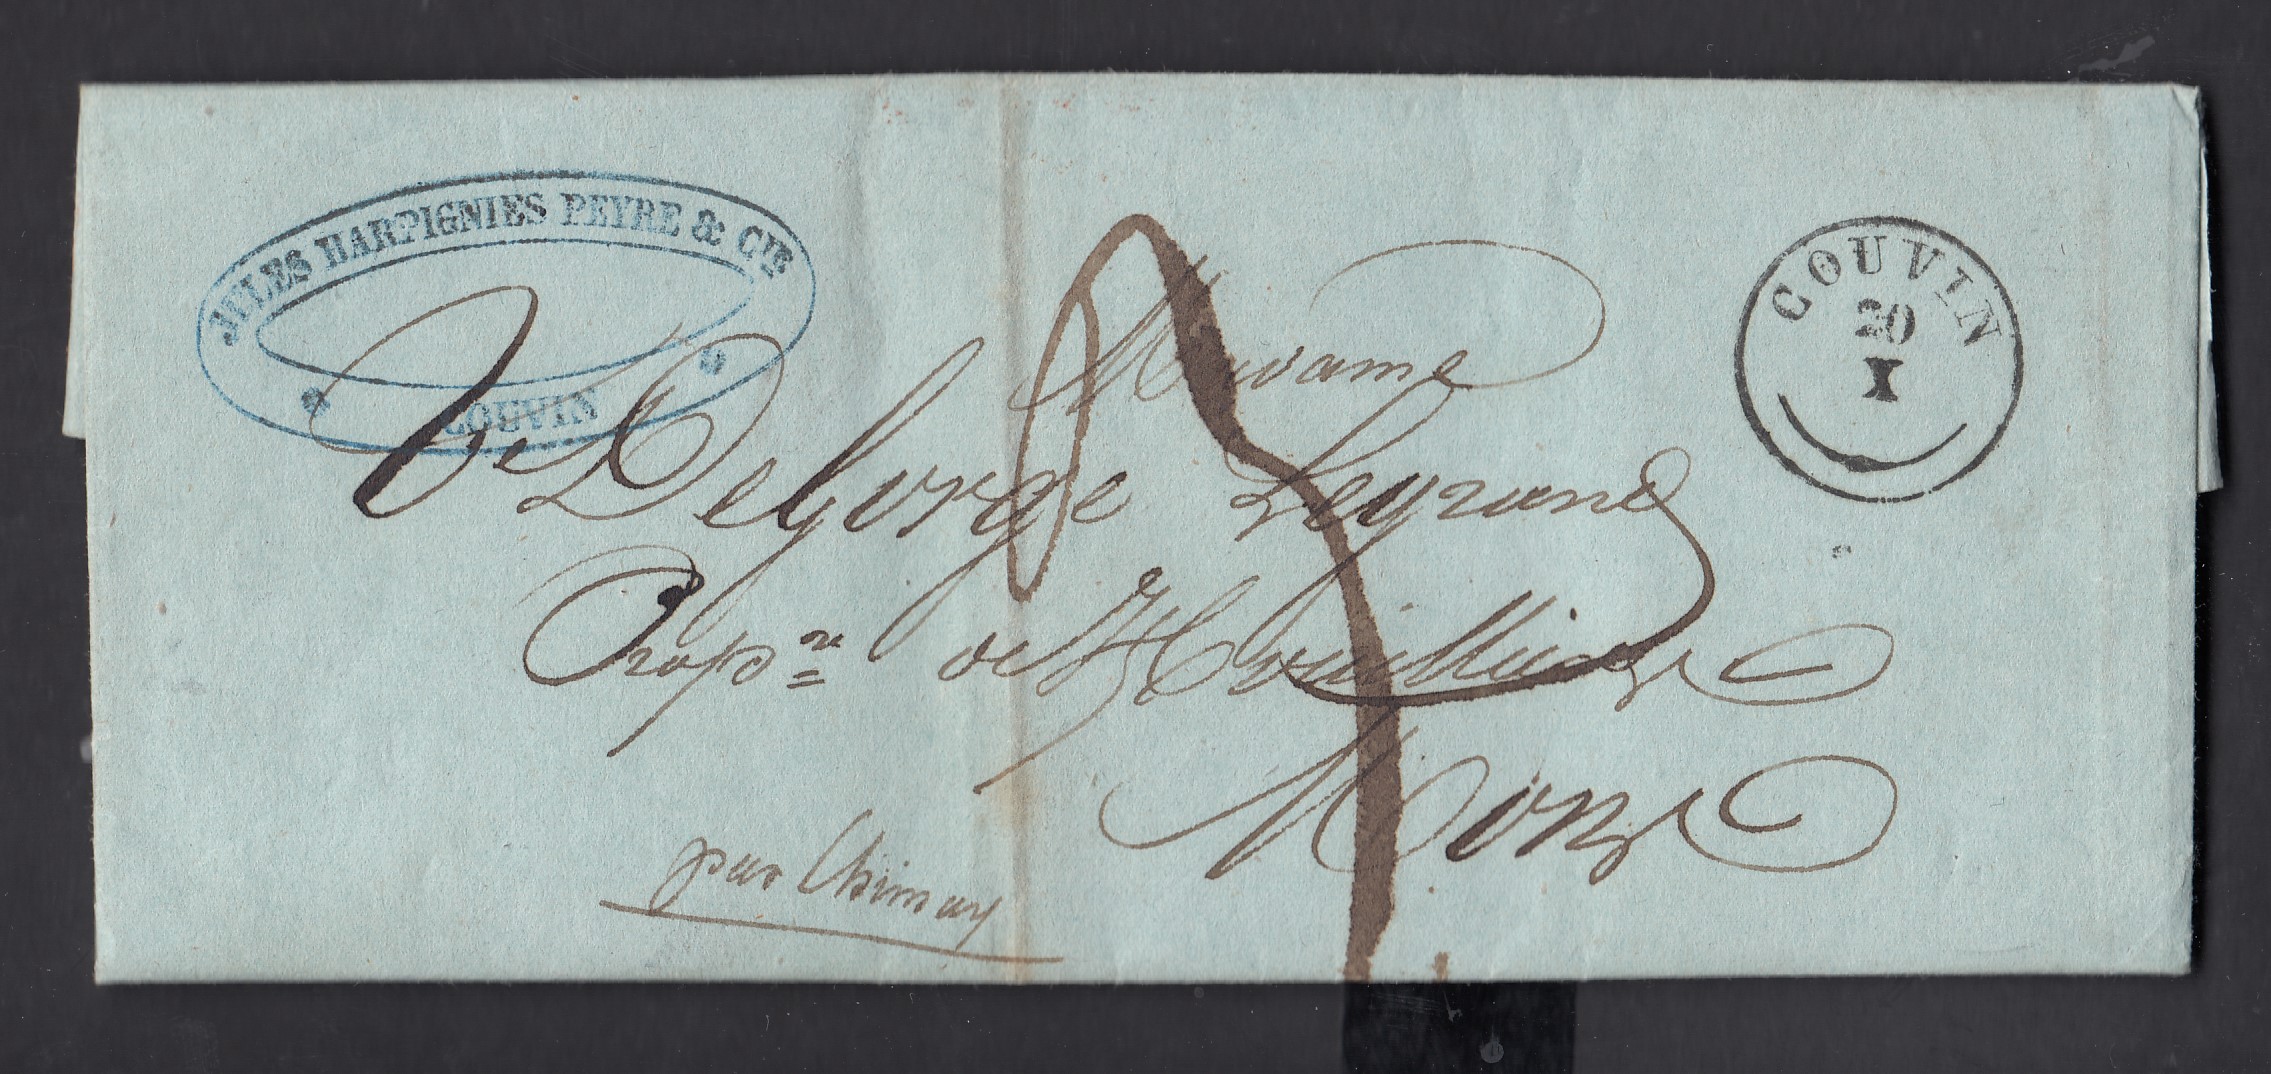 JULES HARPIGNIES PEYRE & CIE
COUVIN
COUVIN
20
X
Madame
Ve Delgorge Legrand
Propre de Houillières
Mons
par Chimay